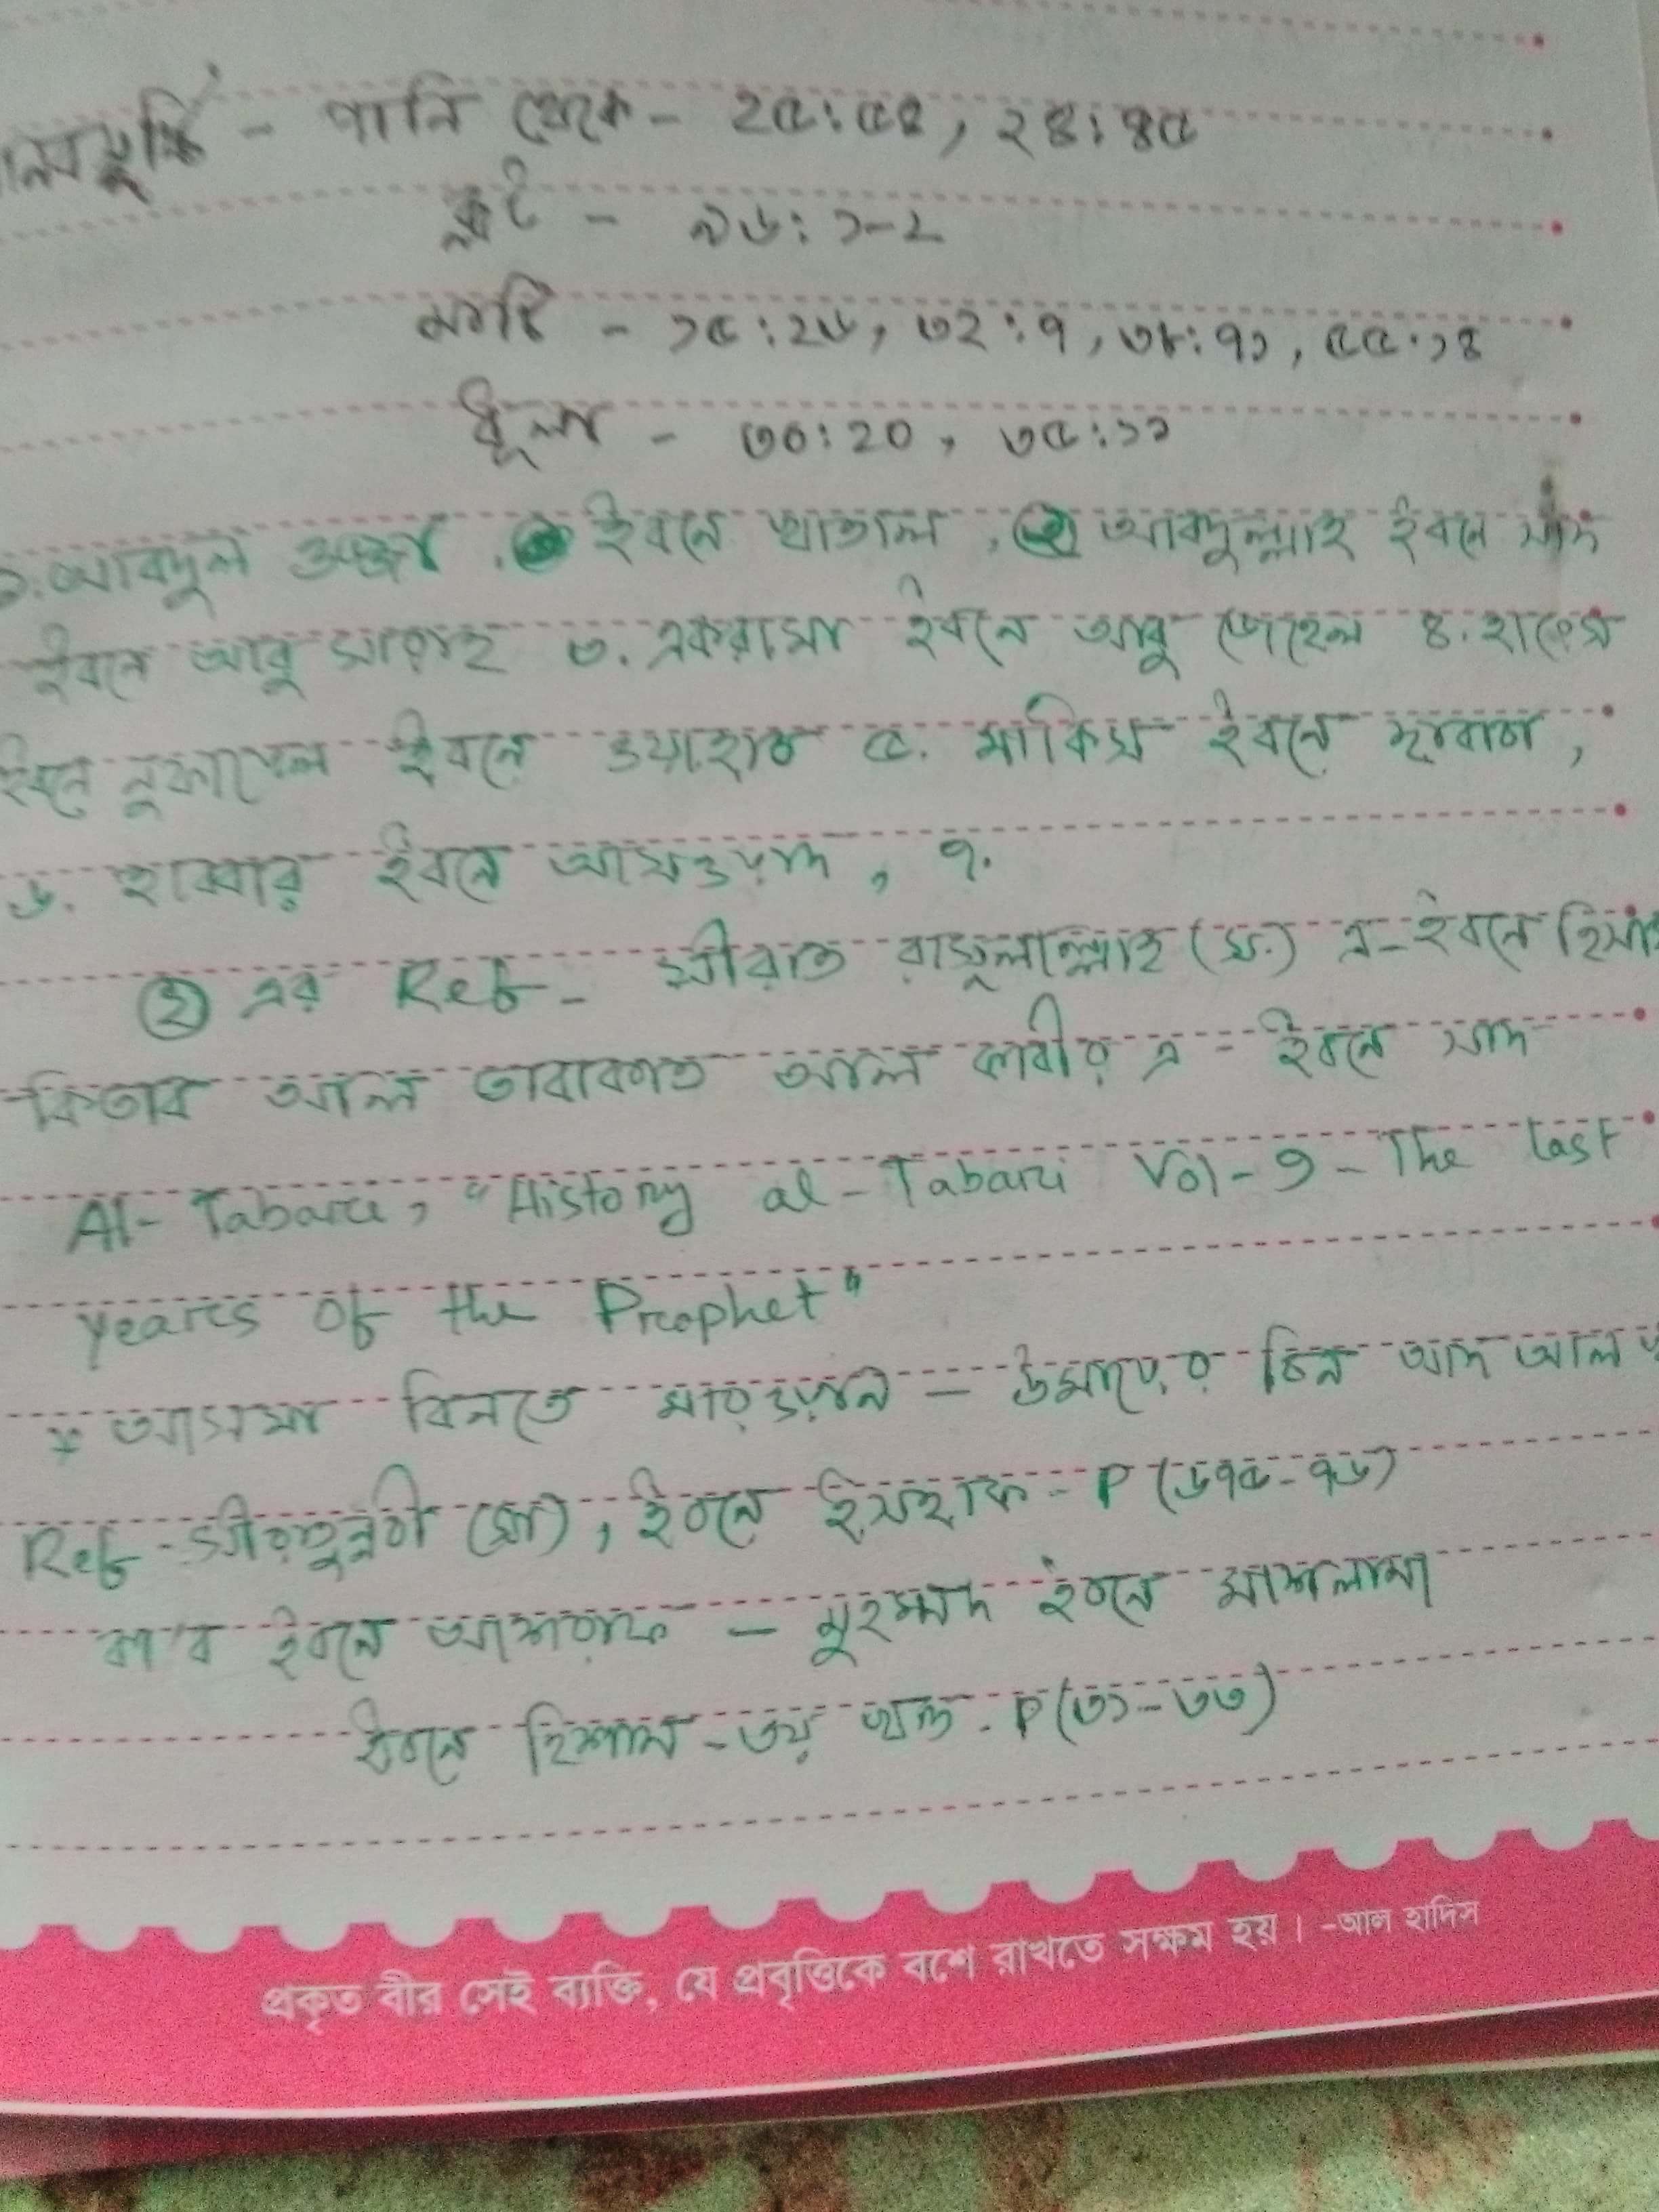 পানি থেকে - ২৫:৫৪, ২৪:৪৫
- ৯৬:১-২
মাটি - ১৫:২৬, ৩২:৭, ৩৮:৭১, ৫৫:১৪
ধুলা - ৩০:20, ৩৫:১১
১. আবদুল উজ্জা ইবনে খাতাল, ২ আবদুল্লাহ ইবনে সাদ
ইবনে আবু সারাহ ৩. একরামা ইবনে আবু জেহেল ৪. হারেস
ইবনে নুফায়েল ইবনে ওয়াহাব ৫. মাকিস ইবনে
৬. হাব্বার ইবনে আসওয়াদ, ৭.
২ এর Ref - সীরাত রাসুলাল্লাহ (স.) এ-ইবনে
কিতাব আল তাবাকাত আল কাবীর এ - ইবনে সাদ
Al-Tabari, "History al-Tabari Vol-9-The last
years of the Prophet"
* আসমা বিনতে মারওয়ান - উমায়ের বিন আদ আল
Ref - সীরাতুন্নবী (সা), ইবনে ইসহাক - P (৬৭৫-৭৬)
কা'ব ইবনে আশরাফ - মুহম্মদ ইবনে মাসলামা
ইবনে হিশাম - ৩য় খন্ড - P(৩১-৩৩)
প্রকৃত বীর সেই ব্যক্তি, যে প্রবৃত্তিকে বশে রাখতে সক্ষম হয়। -আল হাদিস